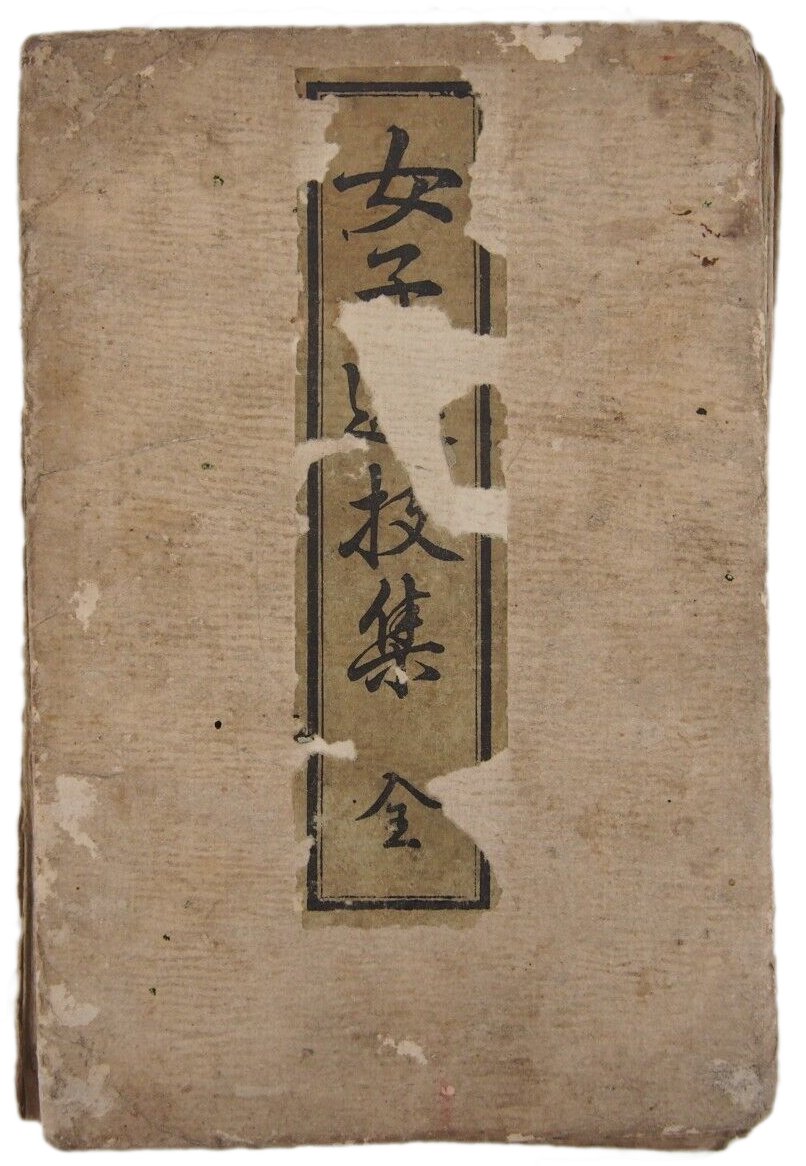 女子技集 全